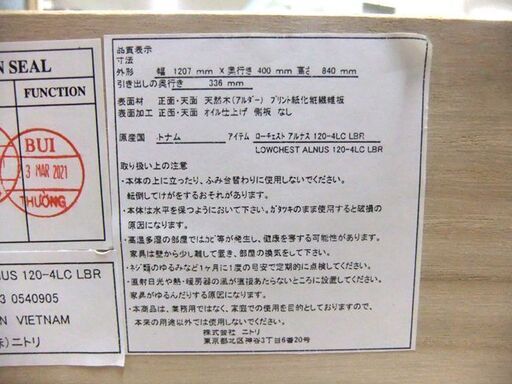 N SEAL
FUNCTION
BUI
3 MAR 2021
THƯỜNG
NUS 120-4LC LBR
3 0540905
N VIETNAM
)ニトリ
品質表示
寸法
外形 幅 1207 mm X 奥行き 400 mm 高さ 840 mm
引き出しの奥行き 336 mm
表面材 正面・天面 天然木(アルダー) プリント紙化粧繊維板
表面加工 正面・天面 オイル仕上げ 側板 なし
原産国 トナム アイテム ローチェスト アルナス 120-4LC LBR
LOWCHEST ALNUS 120-4LC LBR
取り扱い上の注意
・本体の上に立ったり、ふみ台替わりに使用しないでください。
転倒してけがをするおそれがあります。
・本体は水平を保つようにおいて下さい。ガタツキのまま使用すると破損の
原因になります。
・高温多湿の部屋ではカビ等が発生し、健康を害する可能性があります。
家具は壁から少し離して置き、部屋の換気をして下さい。
・ネジ類のゆるみなど1ヶ月に1度の目安で定期的に点検してください。
・直射日光や熱・暖房器の風が直接あたらないところに設置してください。
家具がゆるんだりする原因になります。
・本商品は、業務用ではなく、家庭での使用を目的としておりますので、
本来の用途以外では使用しないでください。
株式会社 ニトリ
東京都北区神谷3丁目6番20号